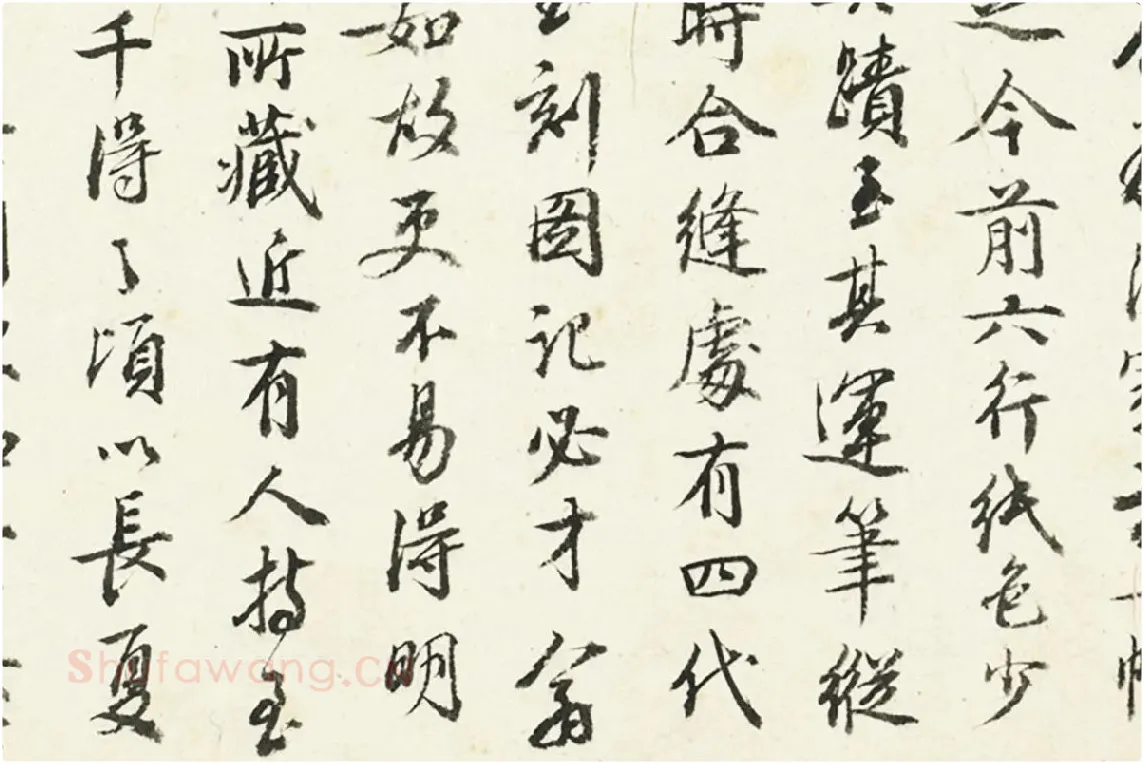 之今前六行紙色少
蹟至其運筆縱
時合縫處有四代
刻圖記必才翁
如故更不易得明
所藏近有人持至
千得了頃以長夏
Shufawang.cn